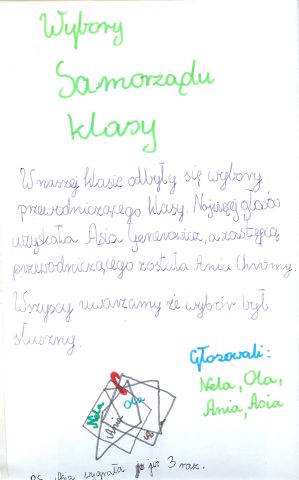 Wybory
Samorządu
klasy
W naszej klasie odbyły się wybory
przewodniczącego klasy. Najwięcej głosów
uzyskała Asia Generowicz, a zastępcą
przewodniczącego została Ania Chromy.
Wszyscy uwarzamy że wybór był
słuszny.
Głosowali:
Nela, Ola,
Ania, Asia
Nela
Ania
Ola
PS. Asia wygrała już 3 raz.